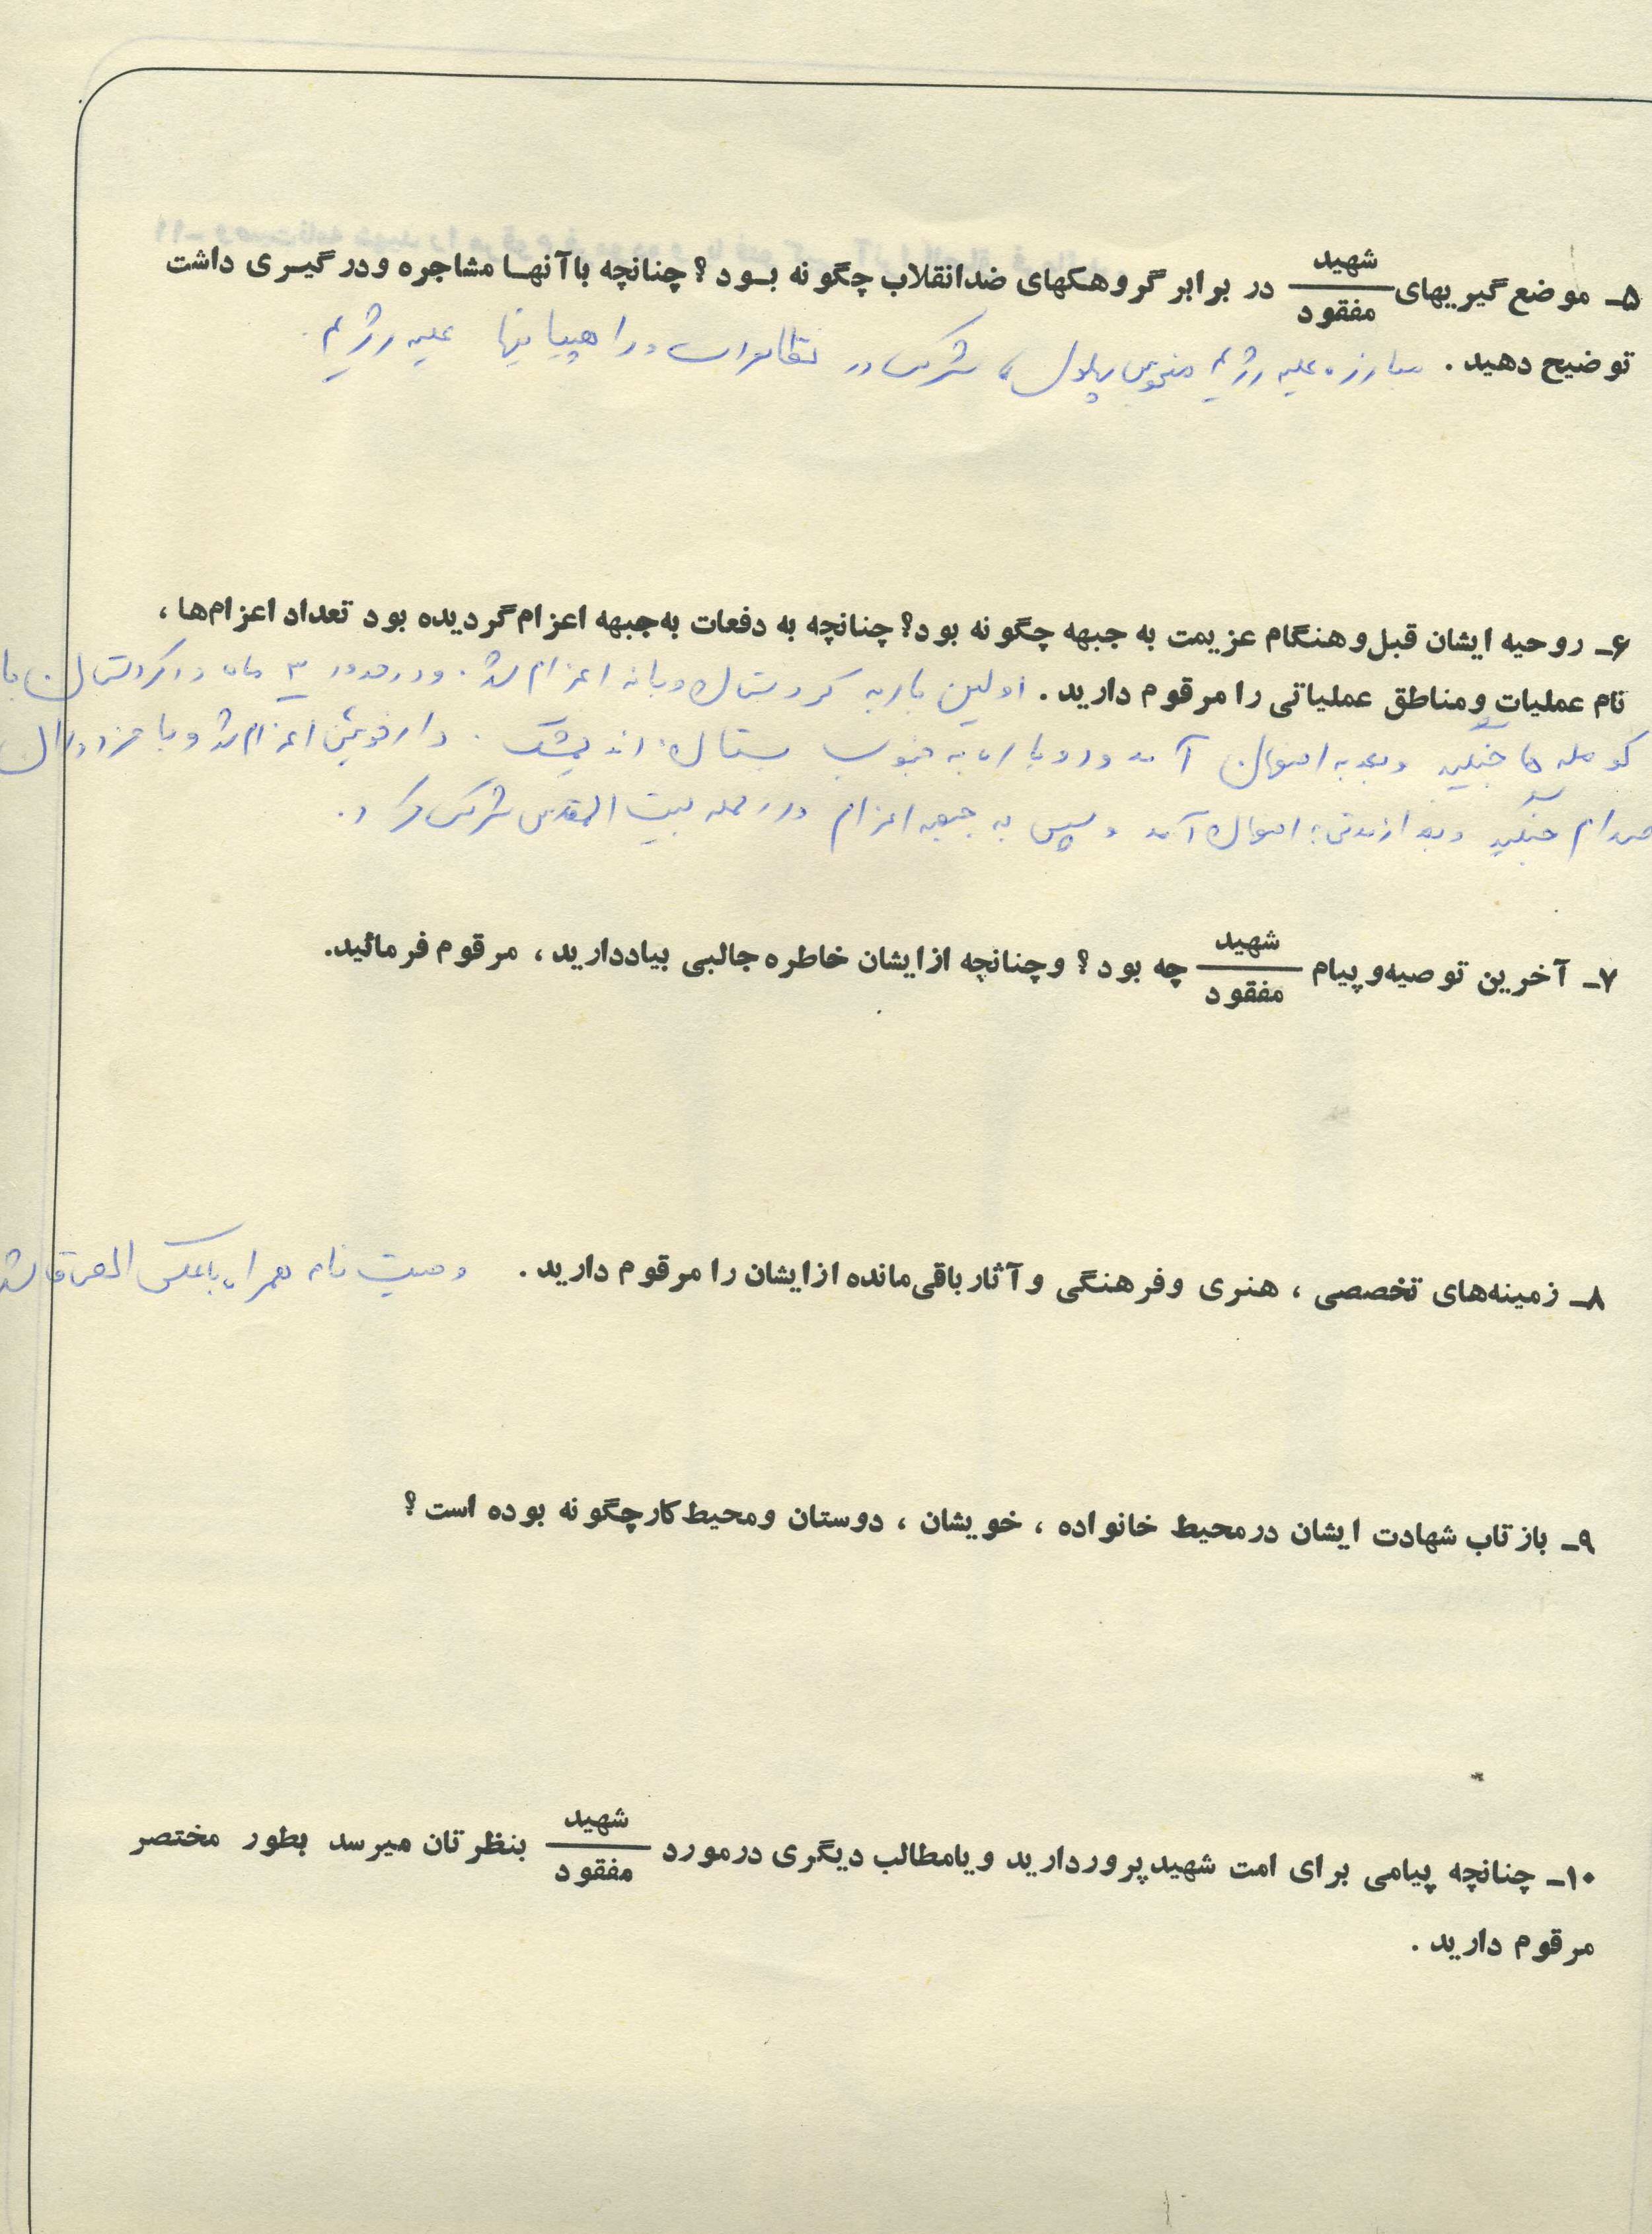 ۵ـ موضع‌گیریهای شهید / مفقود در برابر گروهکهای ضدانقلاب چگونه بود؟ چنانچه باآنها مشاجره ودرگیری داشت
توضیح دهید . مبارزه علیه رژیم منحوس پهلوی، شرکت در تظاهرات و راهپیمائیها علیه رژیم.
۶ـ روحیه ایشان قبل‌وهنگام عزیمت به جبهه چگونه بود؟ چنانچه به دفعات به‌جبهه اعزام‌گردیده بود تعداد اعزام‌ها ،
نام عملیات ومناطق عملیاتی را مرقوم دارید . اولین بار به کردستان و بانه اعزام شد. ودر حدود ۳ ماه در کردستان با
کومله ها جنگید وبعد به اصفهان آمد ودوباره به جنوب بستان، اندیمشک. دارخوین اعزام شد و با مزدوران
صدام جنگید و بعد از مدتی به اصفهان آمد و سپس به جبهه اعزام ودر حمله بیت المقدس شرکت کرد.
۷ـ آخرین توصیه‌وپیام شهید / مفقود چه بود؟ وچنانچه ازایشان خاطره‌جالبی بیاددارید ، مرقوم فرمائید.
۸ـ زمینه‌های تخصصی ، هنری وفرهنگی وآثارباقی‌مانده ازایشان را مرقوم دارید . وصیت نامه همراه باعکس
۹ـ بازتاب شهادت ایشان درمحیط خانواده ، خویشان ، دوستان ومحیط‌کارچگونه بوده است؟
۱۰ـ چنانچه پیامی برای امت شهیدپروردارید ویامطالب دیگری درمورد شهید / مفقود بنظرتان میرسد بطور مختصر
مرقوم دارید .